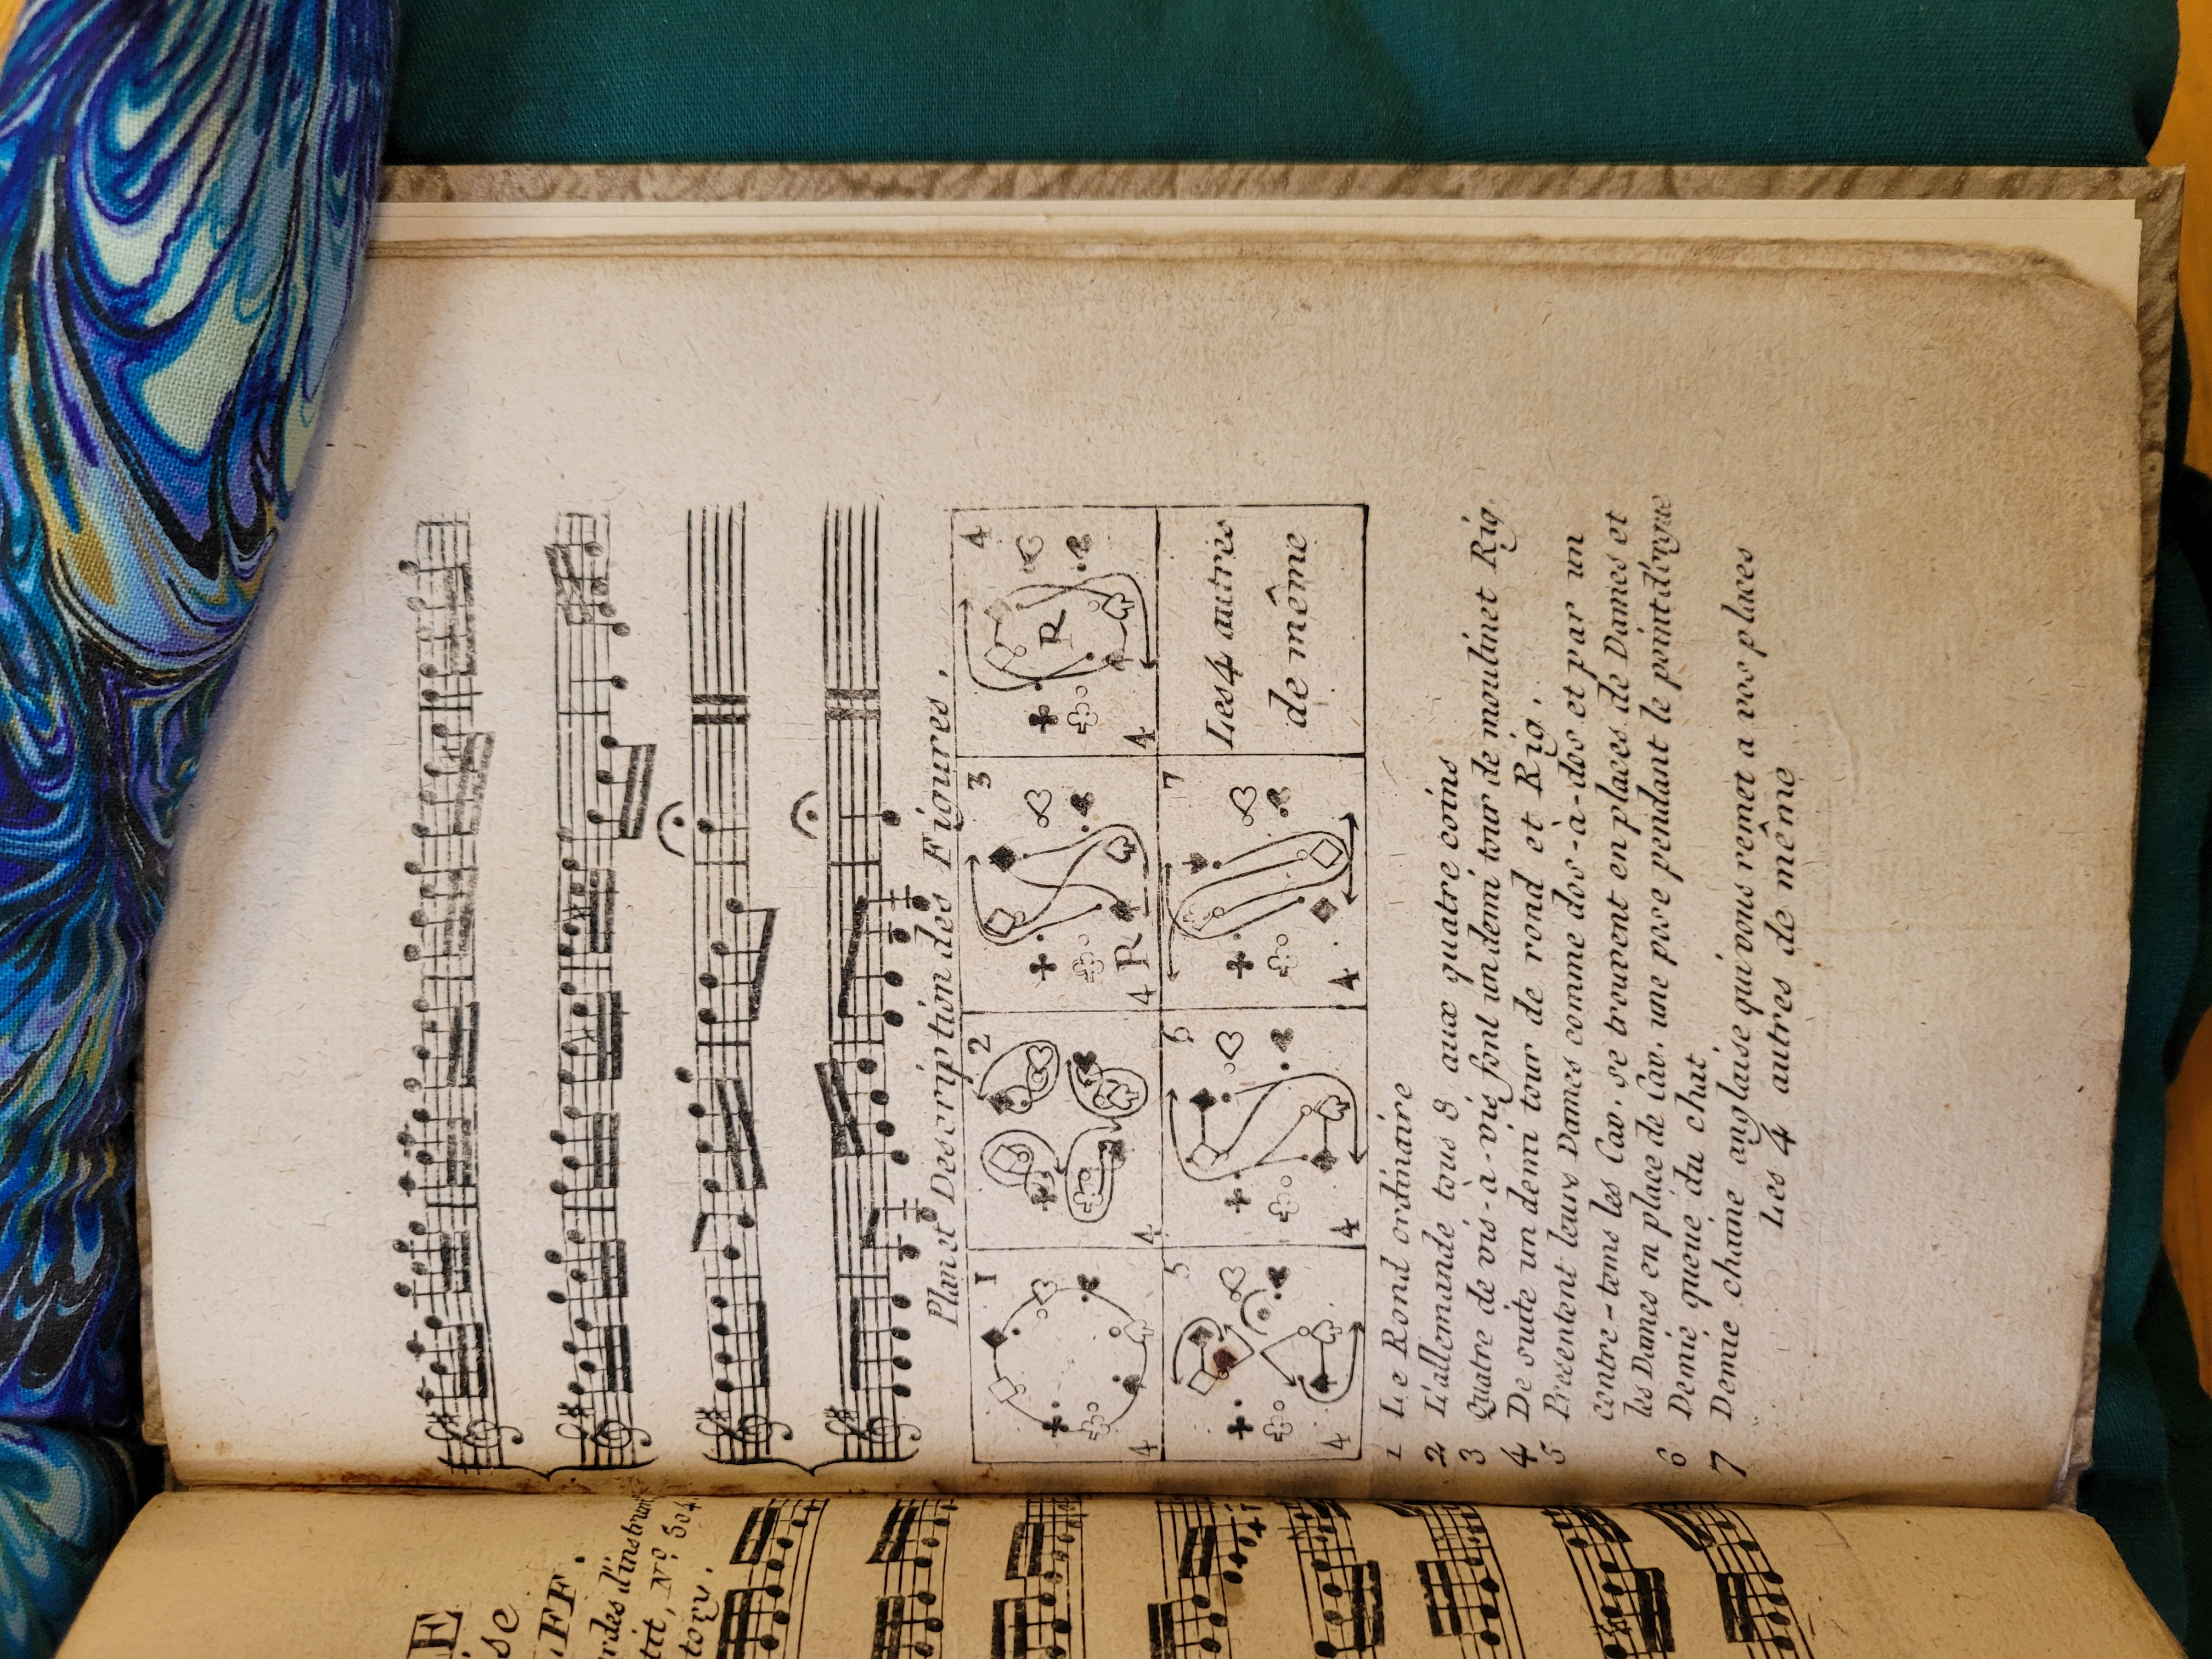 E
se
FF.
rdes d'instrum
tit, N.º 504,
tory.
Plan et Description des Figures.
1
2
3
4
4
4
4 R
R
4
5
6
7
Les 4 autres
de même
4
4
4
1 Le Rond ordinaire
2 L'allemande tous 8 aux quatre coins
3 Quatre de vis-à-vis font un demi tour de moulinet Rig
4 De suite un demi tour de rond et Rig.
5 Presentent leurs Dames comme dos-à-dos et par un
contre-tems les Cav. se trouvent en places de Dames et
les Dames en place de Cav. une pose pendant le point d'orgue
6 Demie queüe du chat
7 Demie chaine anglaise qui vous remet a vos places
Les 4 autres de même